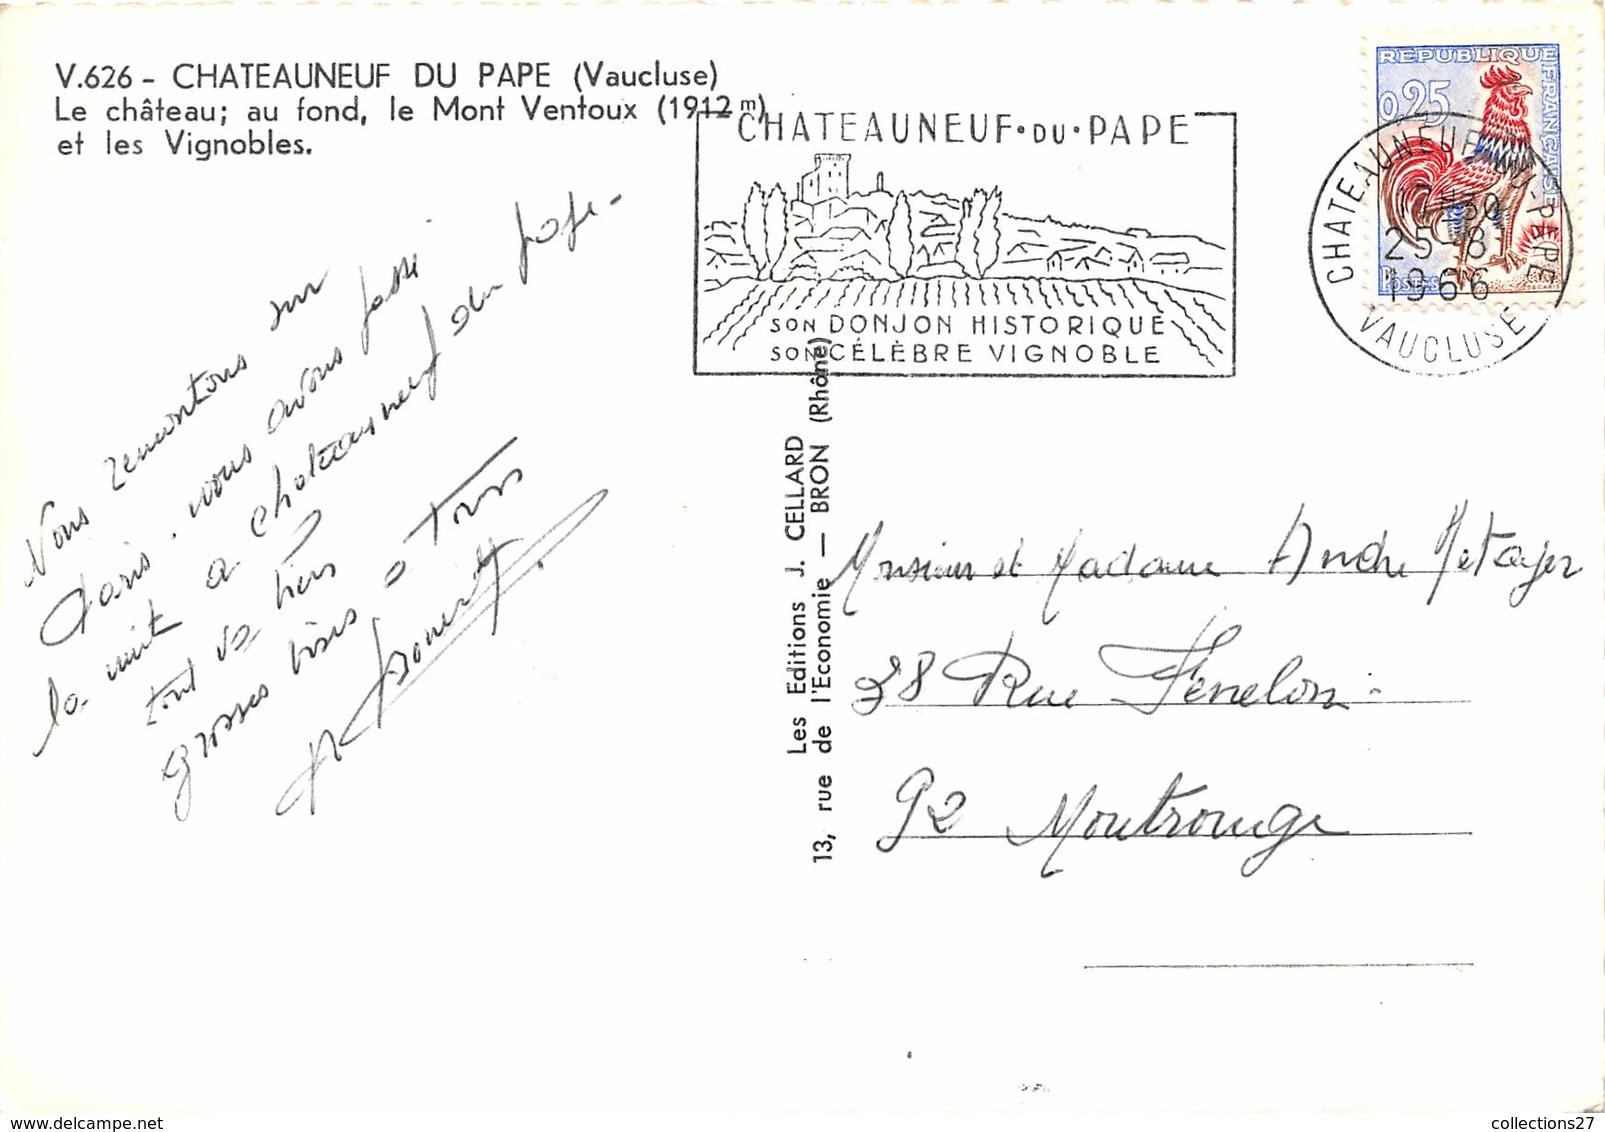 V.626 - CHATEAUNEUF DU PAPE (Vaucluse)
Le château; au fond, le Mont Ventoux (1912 m)
et les Vignobles.
CHATEAUNEUF·DU·PAPE
SON DONJON HISTORIQUE
SON CÉLÈBRE VIGNOBLE
REPUBLIQUE FRANÇAISE
0,25
POSTES
CHATEAUNEUF-DU-PAPE
17-30
25-8
1966
VAUCLUSE
Nous remontons sur
Paris. nous avons passé
la nuit a Chateauneuf du pape-
tout va bien
grosses bises a Tous
Les Editions J. CELLARD
13, rue de l'Economie — BRON (Rhône)
Monsieur et Madame Andre Metayer
38 Rue Fénelon
92 Montrouge
collections27